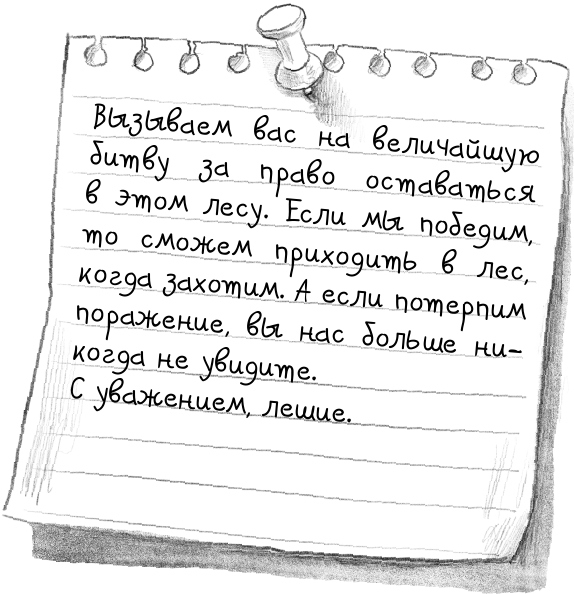 Вызываем вас на величайшую
битву за право оставаться
в этом лесу. Если мы победим,
то сможем приходить в лес,
когда захотим. А если потерпим
поражение, вы нас больше ни-
когда не увидите.
С уважением, лешие.